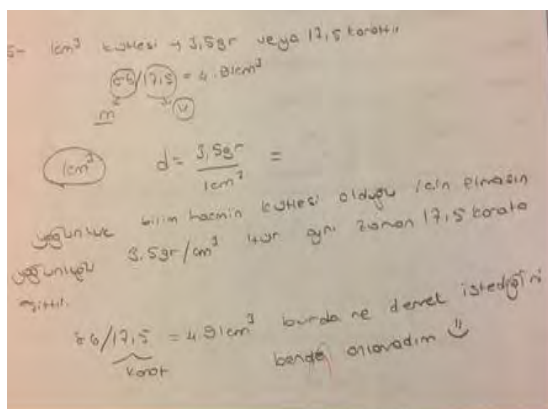 5- 1cm³ kütlesi → 3,5gr veya 17,5 karattır
86/17,5 = 4.91cm³
m v
1cm³ d = 3,5gr / 1cm³ =
yoğunluk birim hacmin kütlesi olduğu için elmasın
yoğunluğu 3.5gr/cm³ tür aynı zaman 17,5 karata
eşittir.
86/17,5 = 4.91cm³ burda ne demek istediğini
karat bende anlamadım